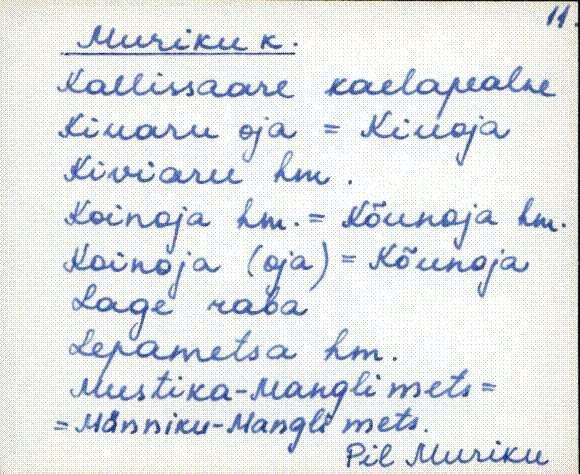 11.
Muriku k.
Kallissaare kaelapealne
Kiuaru oja = Kiuoja
Kiviaru hm.
Koinoja hm. = Kõunoja hm.
Koinoja (oja) = Kõunoja
Lage raba
Lepametsa hm.
Mustika-Mangli mets =
= Männiku-Mangli mets.
Pil Muriku